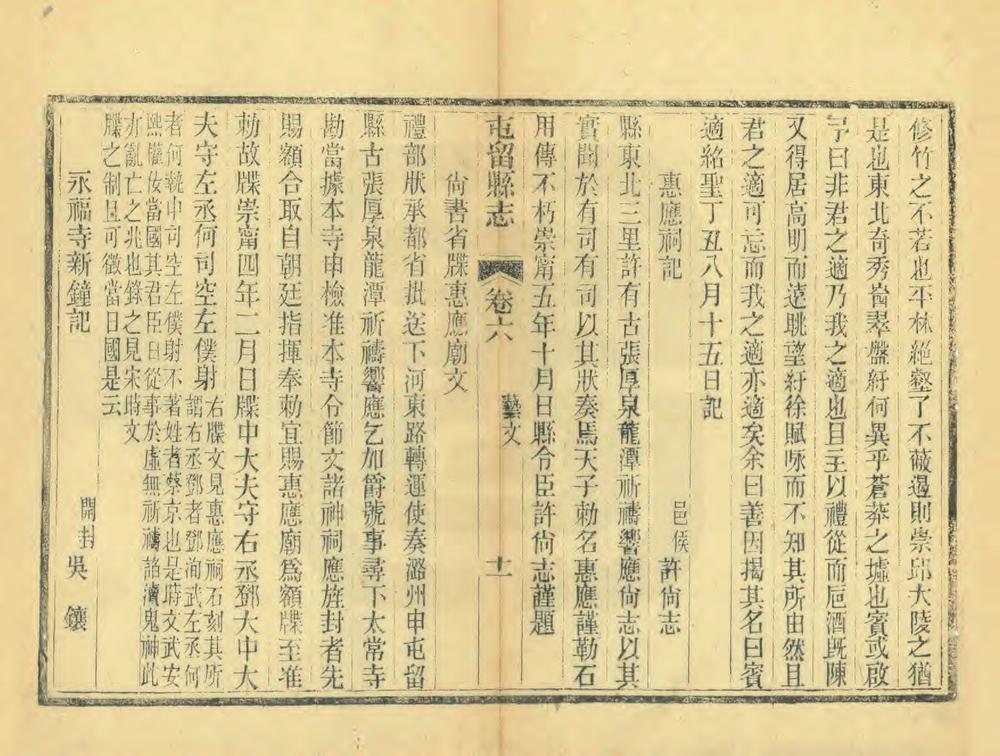 修竹之不若也平林絕壑了不蔽遏則崇邱大陵之猶
是也東北奇秀崙翠盤紆何異乎蒼莽之墟也賓或啟
予曰非君之適乃我之適也且主以禮從而巵酒旣陳
又得居高明而遠眺望紆徐賦咏而不知其所由然且
君之適可忘而我之適亦適矣余曰善因揭其名曰賓
適紹聖丁丑八月十五日記
惠應祠記
邑侯
許尙志
縣東北三里許有古張厚泉龍潭祈禱響應尙志以其
實聞於有司有司以其狀奏焉天子勅名惠應謹勒石
用傳不朽崇甯五年十月日縣令臣許尙志謹題
屯留縣志
卷六
藝文
十一
尙書省牒惠應廟文
禮部狀承都省批送下河東路轉運使奏潞州申屯留
縣古張厚泉龍潭祈禱響應乞加爵號事尋下太常寺
勘當據本寺申檢准本寺令節文諸神祠應旌封者先
賜額合取自朝廷指揮奉勅宜賜惠應廟爲額牒至准
勅故牒崇甯四年二月日牒中大夫守右丞鄧大中大
夫守左丞何司空左僕射
右牒文見惠應祠石刻其所
謂右丞鄧者鄧洵武左丞何
者何執中司空左僕射不著姓者蔡京也是時文武安
熙懽侫當國其君臣日從事於虛無祈禱諂瀆鬼神此
亦亂亡之兆也錄之見宋時文
牒之制且可徵當日國是云
永福寺新鐘記
開封
吳鑲